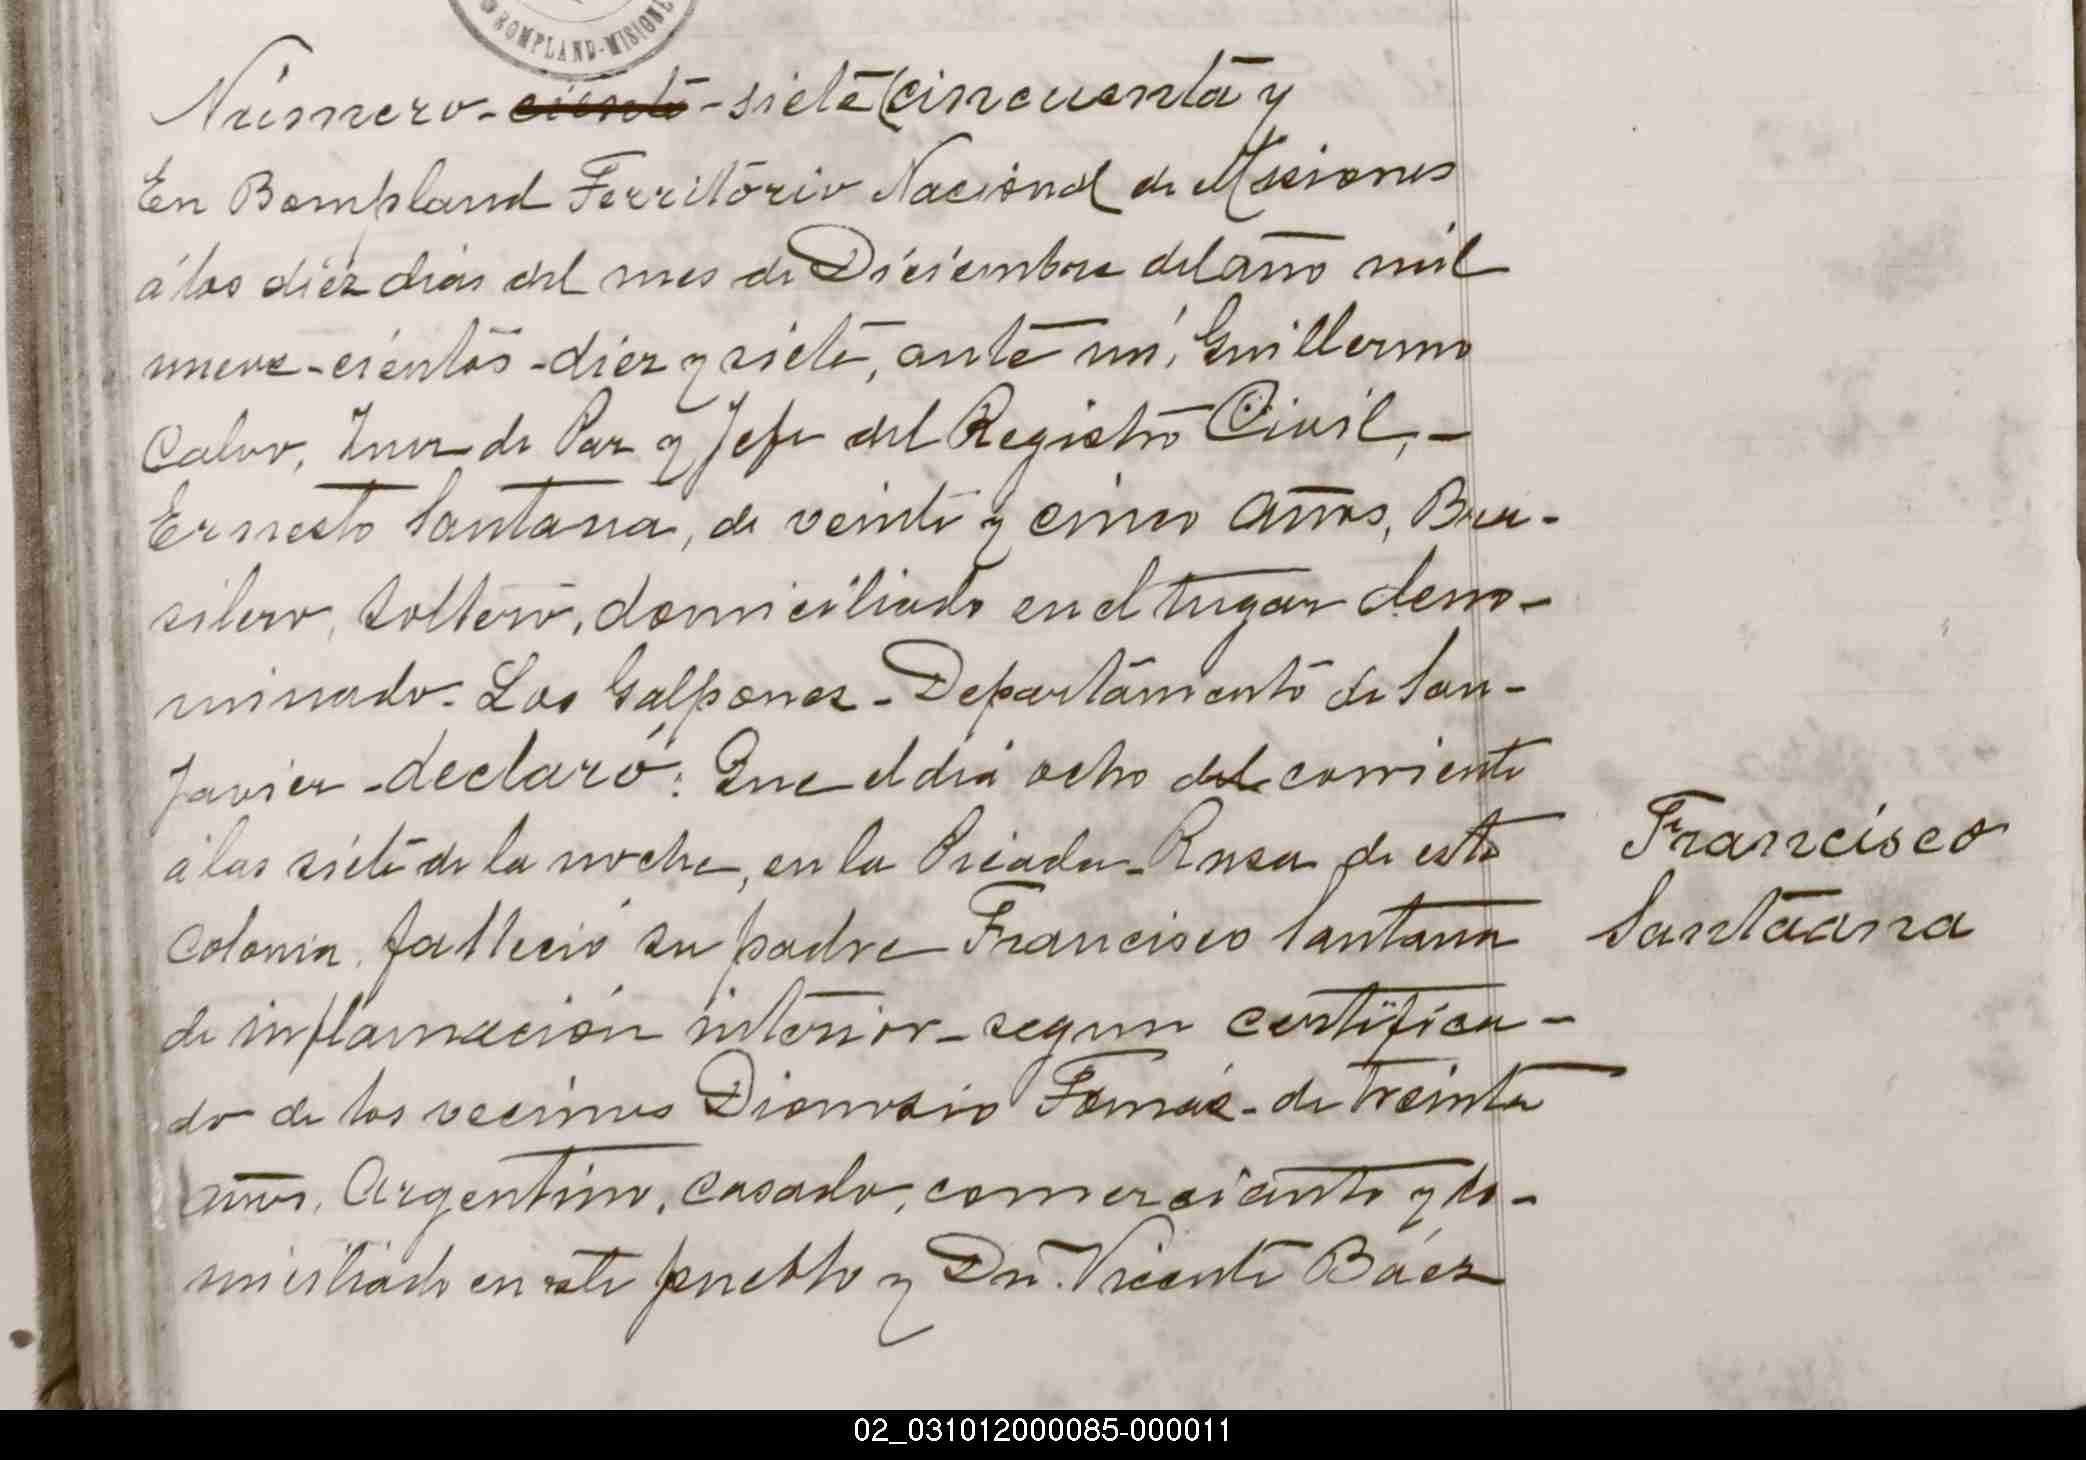 BOMPLAND-MISIONE
Número - ciento - siete (cincuenta y
En Bompland Territorio Nacional de Misiones
á los diéz dias del mes de Diciembre del año mil
nueve-cientos-diez y siete, ante mí, Guillermo
Calvo, Juez de Paz y Jefe del Registro Civil, -
Ernesto Santana, de veinte y cinco años, Bra-
silero, soltero, domiciliado en el lugar deno-
minado - Los Galpones - Departamento de San-
Javier - declaró: Que el dia ocho del corriente
á las siete de la noche, en la Picada - Rusa de esta
Colonia, falleció su padre Francisco Santana
de inflamación interior - segun certifica-
do de los vecinos Dionisio Tomás - de treinta
años, Argentino, casado, comerciante y do-
miciliado en este pueblo y Dn. Vicente Báez
Francisco
Santaana
02_031012000085-000011